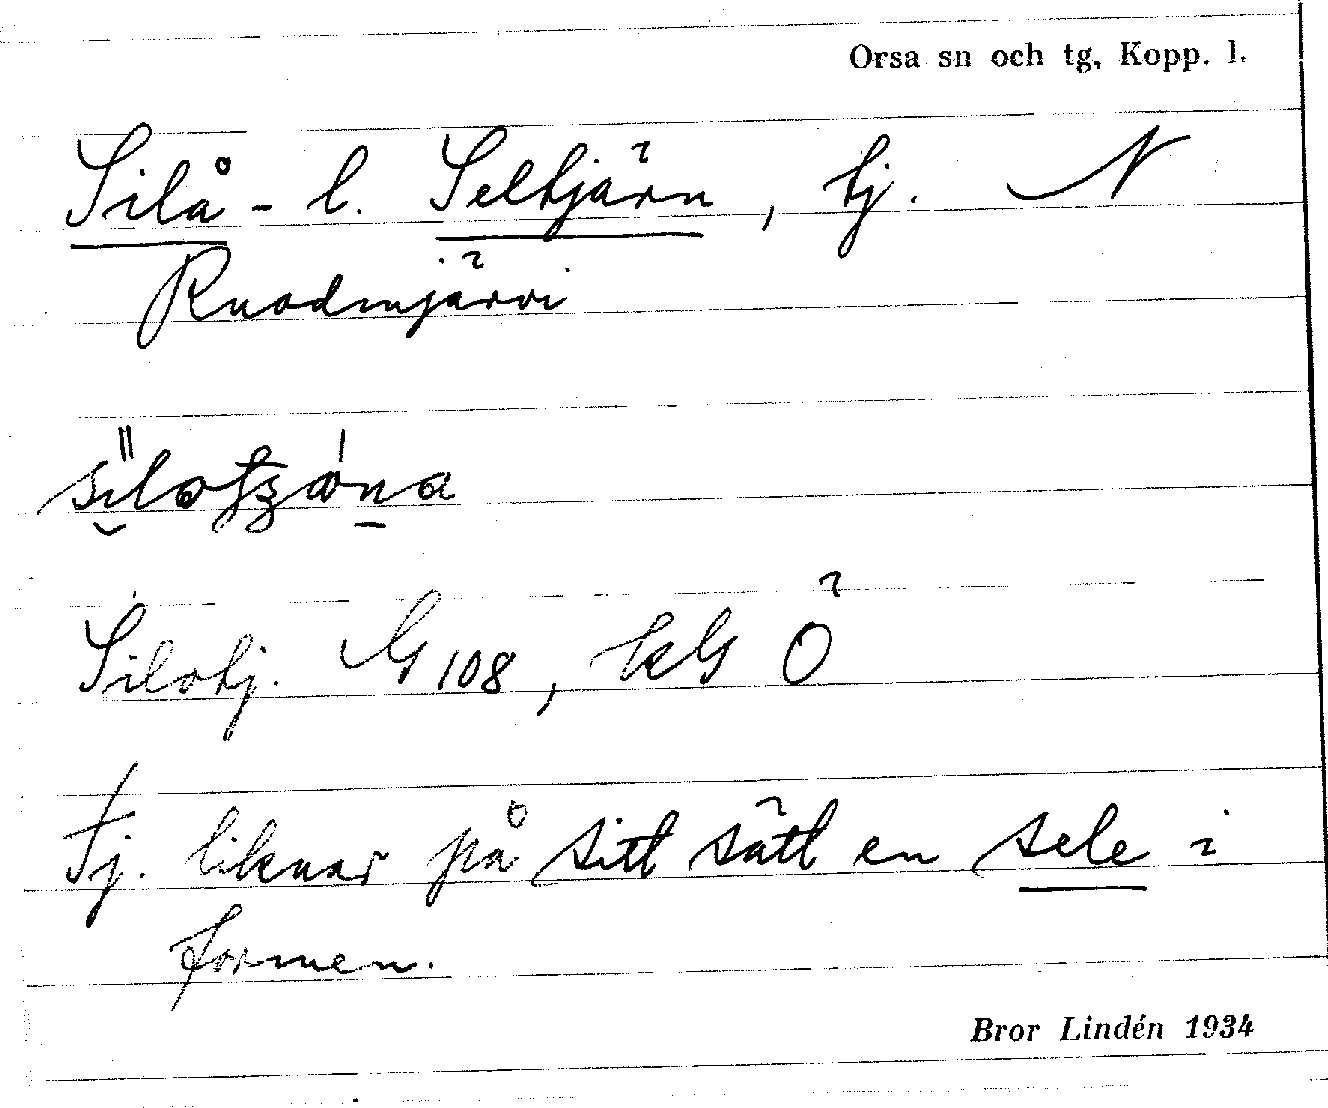 Orsa sn och tg, Kopp. l.
Silå- l. Seltjärn, tj. N
Ruodmjärvi
Silotj. G 108, kG Ö
Tj. liknar på sitt sätt en sele i
formen.
Bror Lindén 1934